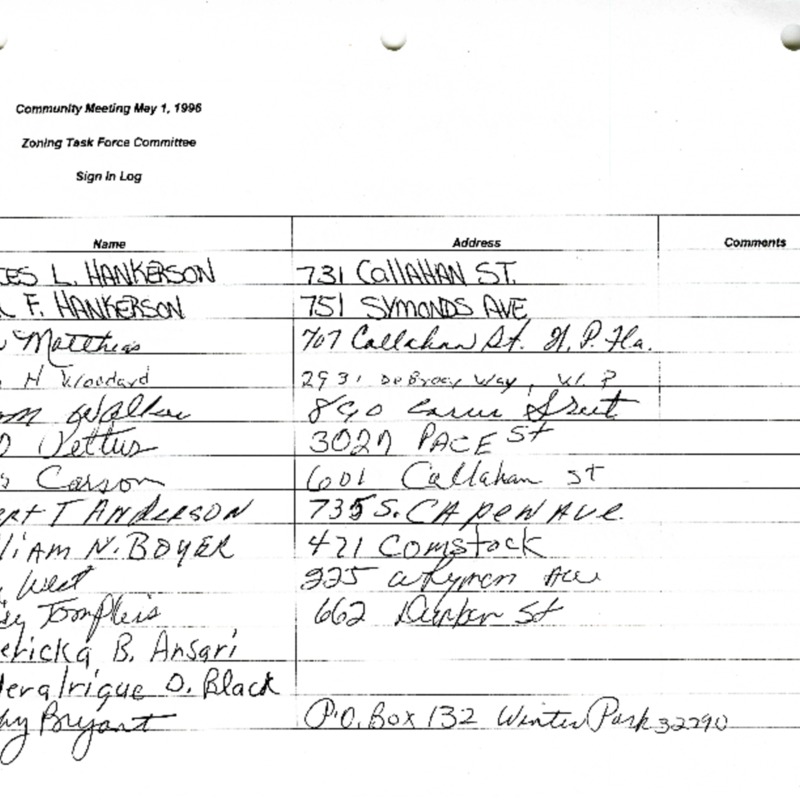 Community Meeting May 1, 1996
Zoning Task Force Committee
Sign In Log
Name Address Comments
ES L. HANKERSON 731 CALLAHAN ST.
F. HANKERSON 751 SYMONDS AVE
Matthias 707 Callahan St. W.P. Fla.
H Woodard 2931 DeBrocy Way, W. P
Walker 890 Street
Vettus 3027 PACE St
Carson 601 Callahan St
ERT T ANDERSON 735 S. CAPEN AVE.
LIAM N. BOYER 421 Comstock
West 225 Ave
Tompkis 662 St
ericka B. Ansari
deralrique D. Black
hy Bryant P.O. Box 132 Winter Park 32790